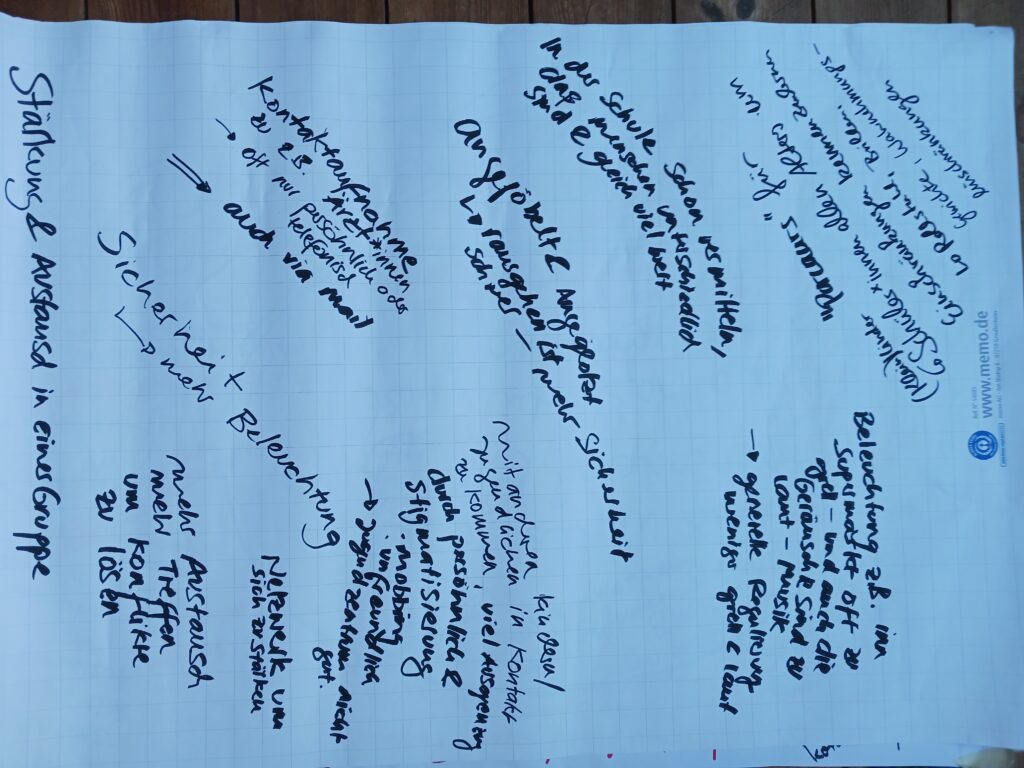 www.memo.de
(Klein)kinder "Parcours" für
↳ Schüler*innen allen Alters um
Einschränkungen kennen
↳ Rollstuhl, Brillen, Wahrnehmungs-
Gewichte,
Beleuchtung z.B. im
Supermarkt oft zu
grell – und auch die
Geräusche sind zu
laut – Musik
→ generelle Regulierung
weniger grell & laut
In der Schule schon vermitteln,
daß menschen unterschiedlich
sind & gleich viel wert
angepöbelt & Angeglotzt
↳ rausgehen ist
schwer – mehr Sicherheit
mit anderen kindern/
jugendlichen in Kontakt
zu kommen, viel Ausgrenzung
durch persönliche
Stigmatisierung
- mobbing
- unfreundlich
→ Jugendzentrum nicht
gut.
Kontaktaufnahme
zu z.B. Ärzt*innen
→ oft nur persöhnlich oder
telefonisch
⇒ auch via mail
Netzwerk um
sich zu stärken
Sicherheit + Beleuchtung
↳ mehr
mehr Austausch
mehr Treffen
um konflikte
zu lösen
Stärkung & Austausch in einer Gruppe